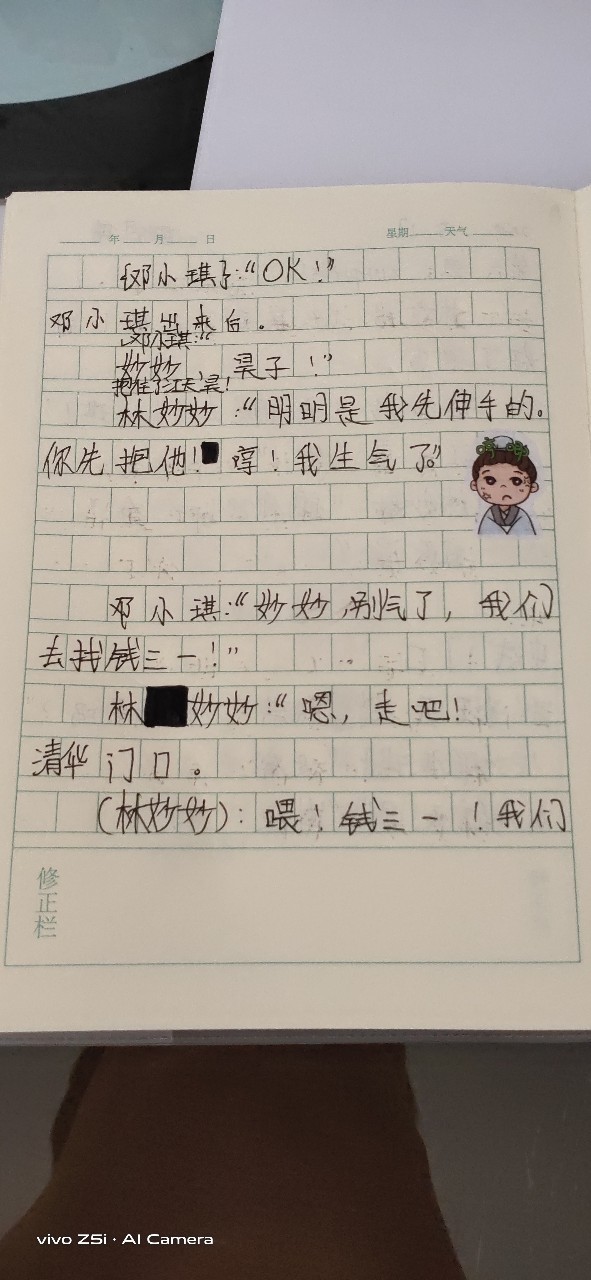 年 月 日 星期 天气
邓小琪:“OK!”
邓小琪出来后。
邓小琪:“
妙妙、昊子!”
抱住了江天昊!
林妙妙:“明明是我先伸手的。
你先抱他! 哼!我生气了。”
邓小琪:“妙妙,别气了,我们
去找钱三一!”
林 妙妙:“嗯,走吧!
清华门口。
(林妙妙):喂!钱三一!我们
修正栏
vivo Z5i · AI Camera